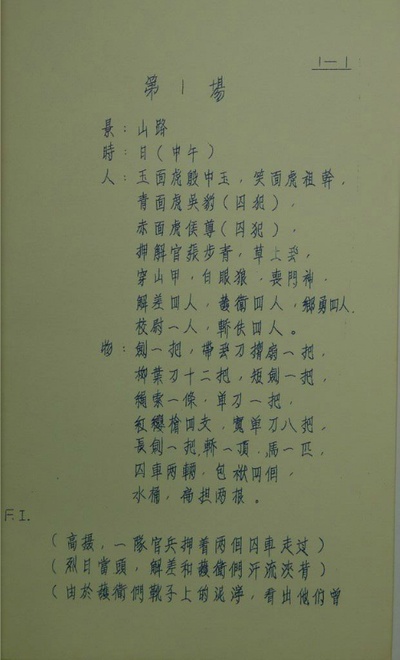 1—1
第1場
景：山路
時：日（中午）
人：玉面虎殷中玉，笑面虎祖幹，
青面虎吳豹（囚犯），
赤面虎侯尊（囚犯），
押解官張步青，草上飛，
穿山甲，白眼狼，喪門神，
解差四人，護衛四人，鄉勇四人，
校尉一人，轎伕四人。
物：劍一把，帶刀摺扇一把，
柳葉刀十二把，短劍一把，
繩索一條，单刀一把，
紅纓槍四支，單刀八把，
長劍一把，轎一頂，馬一匹，
囚車两輛，包袱四個，
水桶，扁担两根。
F.I.
（高摄，一隊官兵押着两個囚車走过）
（烈日當頭，解差和護衛們汗流浹背）
（由於護衛們靴子上的泥濘，看出他们曾